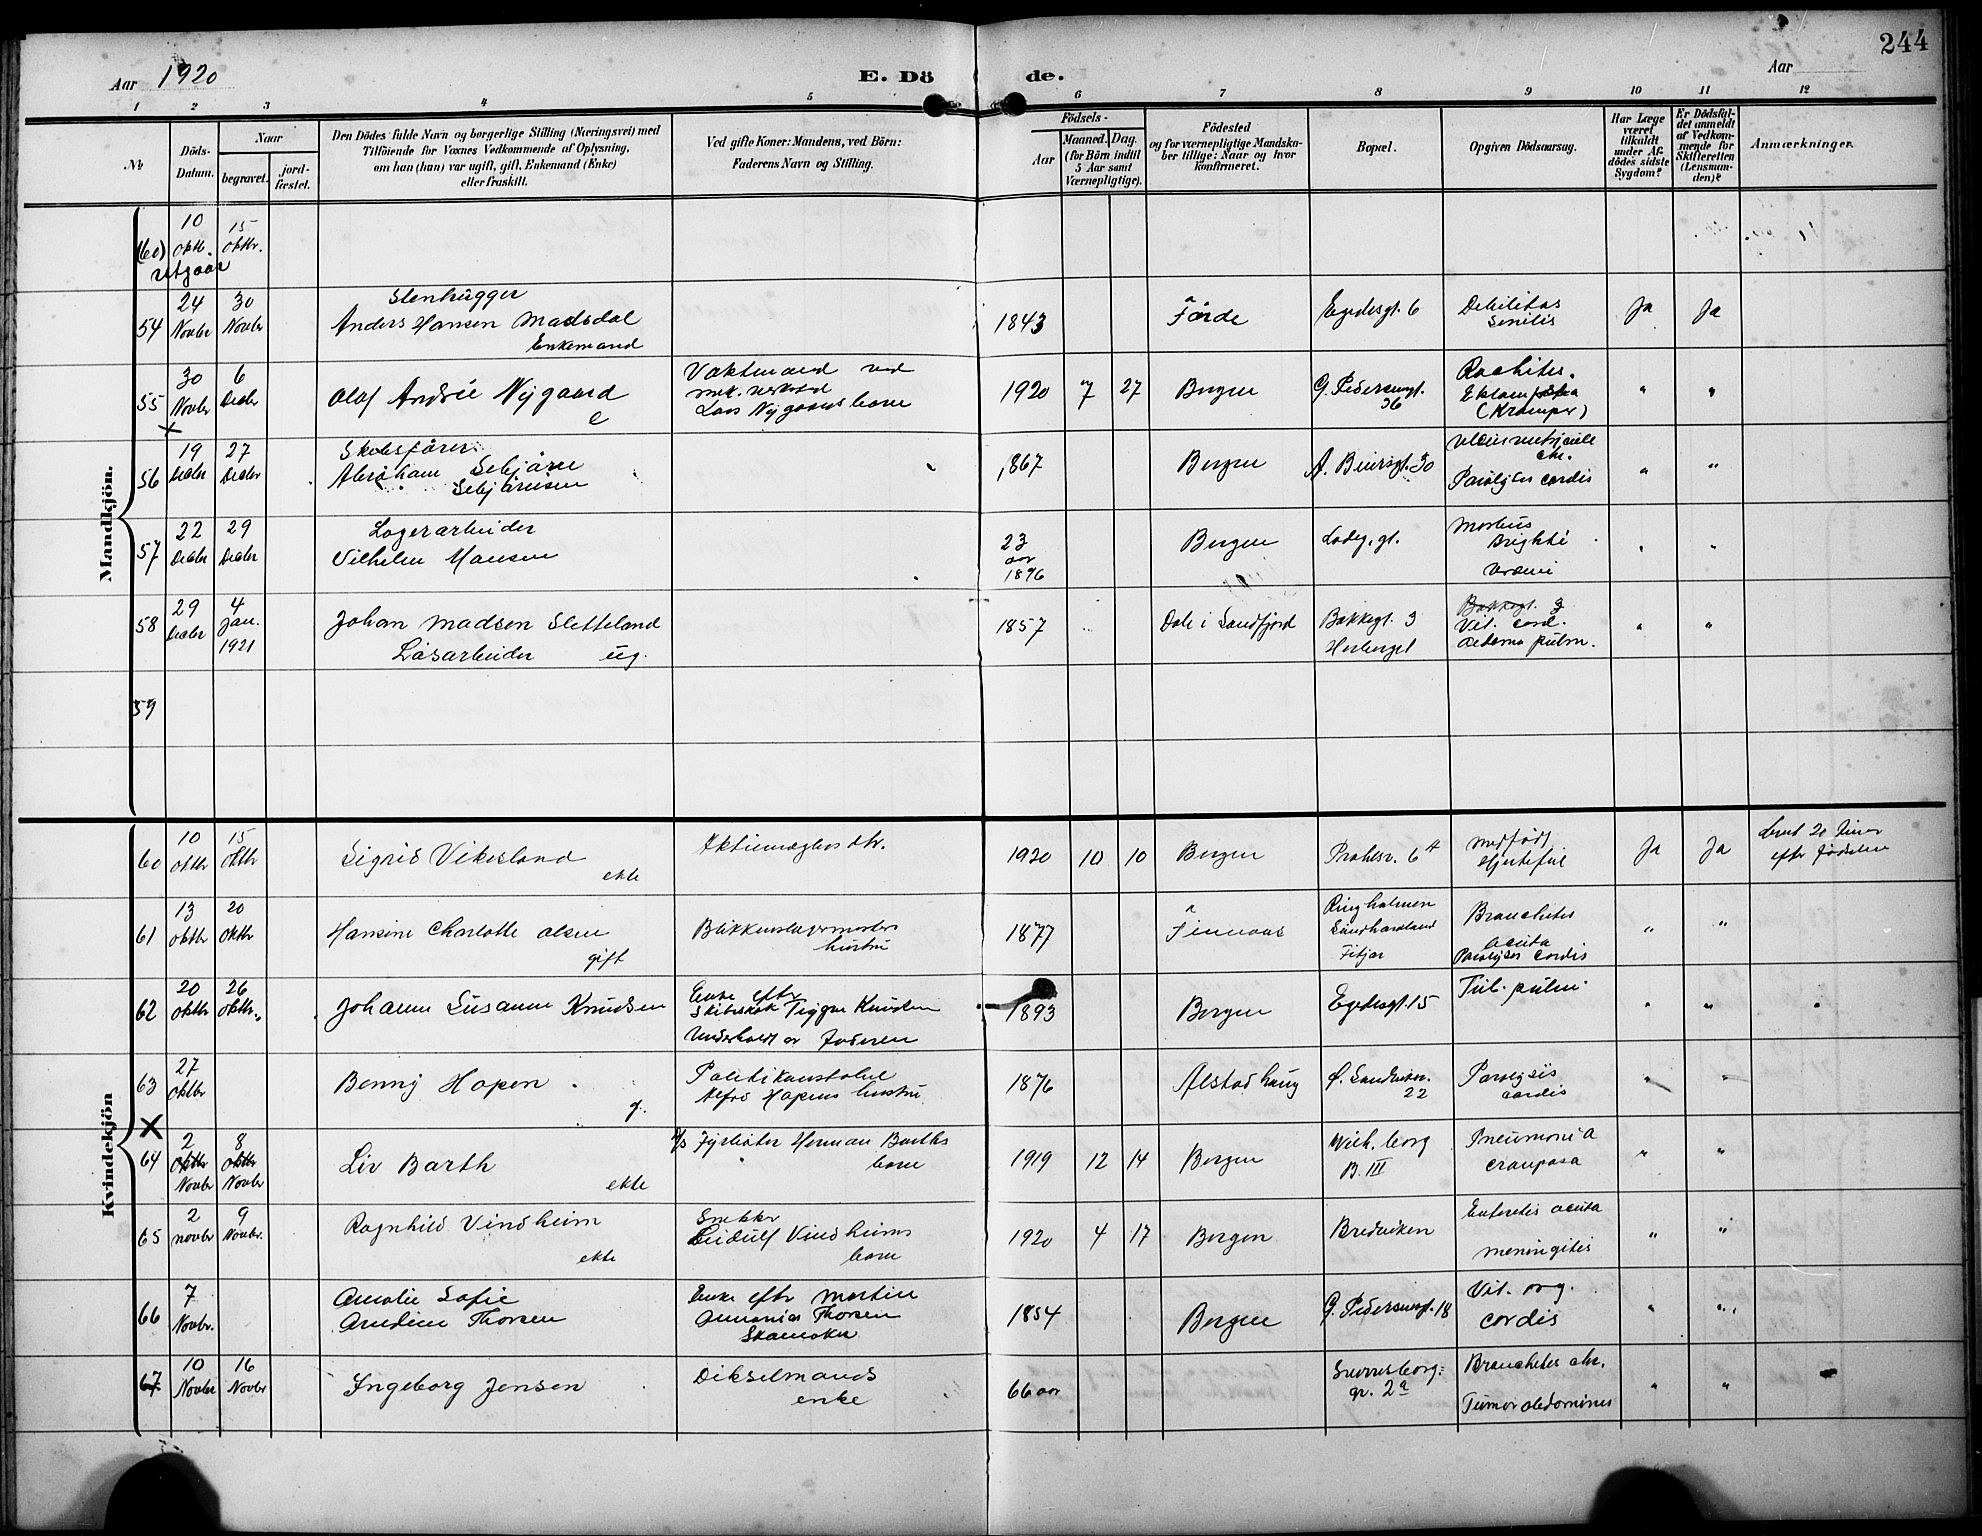 244
Aar 1920
E. Dö de.
Aar
1 2 3 4 5 6 7 8 9 10 11 12
№
Döds-Datum.
Naar
begravet.
jord-fæstet.
Den Dödes fulde Navn og borgerlige Stilling (Næringsvei) med
Tilföiende for Voxnes Vedkommende af Oplysning,
om han (hun) var ugift, gift, Enkemand (Enke)
eller fraskilt.
Ved gifte Koner: Mandens, ved Börn:
Faderens Navn og Stilling.
Födsels-
Aar
Maaned. Dag.
(for Börn indtil
5 Aar samt
Værnepligtige).
Födested
og for værnepligtige Mandska-
ber tillige: Naar og hvor
konfirmeret.
Bopæl.
Opgiven Dödsaarsag.
Har Læge
været
tilkaldt
under Af-
dödes sidste
Sygdom?
Er Dödsfal-
det anmeldt
af Vedkom-
mende for
Skifteretten
(Lensman-
den)?
Anmærkninger.
Mandkjön.
(60) 10 oktb. 15 oktbr.
utgaar
54 24 Novbr 30 Novbr
Stenhugger
Anders Hansen Madsdal
Enkemand
1843 Förde Egedesgt. 6 Debilitas senilis Ja Ja
55 30 Novbr 6 Decbr
Olaf Andrè Nygaard
e
Vaktmand ved
mek. verksted
Lars Nygaards barn
1920 7 27 Bergen G. Pedersensgt. 36 Rachitis. Eklampsia (Kramper) " "
56 19 Decbr 27 Decbr
Skibsförer
Abraham Sebjörn
Sebjörnsen
1867 Bergen A. Beiersgt. 30 chr. Paralysis cordis " "
57 22 Decbr 29 Decbr
Lagerarbeider
Vilhelm Hansen
23 aar 1896 Bergen Ladeg.gt. Morbus Brighti Uræmi " "
58 29 Decbr 4 Jan. 1921
Johan Madsen Sletteland
Løsarbeider ug.
1857 Dale i Sandfjord Bakkegt. 3 Herberget Bakkegt. 3 Vit. cord. Oedema pulm. " "
59
Kvindekjön
60 10 oktbr 15 oktbr
Sigrid Vikesland
ekte
Aktiemæglers dtr.
1920 10 10 Bergen 6 medfödt hjertefeil Ja Ja levet 20 timer efter födselen
61 13 oktbr 20 oktbr
Hansine Charlotte Olsen
gift
Blikkenslagermesters
hustru
1877 Finnaas Ringholmen Søndhordland Fitjar Bronchitis acuta Paralyses cordis " "
62 20 oktbr 26 oktbr.
Johanne Susanne Knudsen
Enke efter
Knudsen
Underholdt av Faderen
1893 Bergen Egedesgt. 15 Tub. pulm. " " "
63 27 oktbr
Benny Hopen
g.
Politikonstabel
Alfred Hopens hustru
1876 Alstadhaug Ø. 22 Paralysis cordis " "
X
64 2 oktbr Novbr 8 oktbr Novbr
Liv Barth
ekte
Fyrbøter Herman Barths
barn
1919 12 14 Bergen Wilh. borg B. III Pneumonia crouposa " "
65 2 novbr 9 Novbr.
Ragnhild Vindheim
ekte
Snekker
Leidulf Vindheims
barn
1920 4 17 Bergen Bredviken Enteritis acuta meningitis " "
66 7 Novbr.
Amalie Sofie
Arndine Thorsen
Enke efter Martin
Ammonius Thorsen
Skomaker
1854 Bergen G. Pedersensgt. 18 Vit. org. cordis " "
67 10 Novbr 16 Novbr
Ingeborg Jensen
Dikselmands
enke
66 aar Sverresborg: gr. 2a Bronchites chr. Tumor abdominis " "